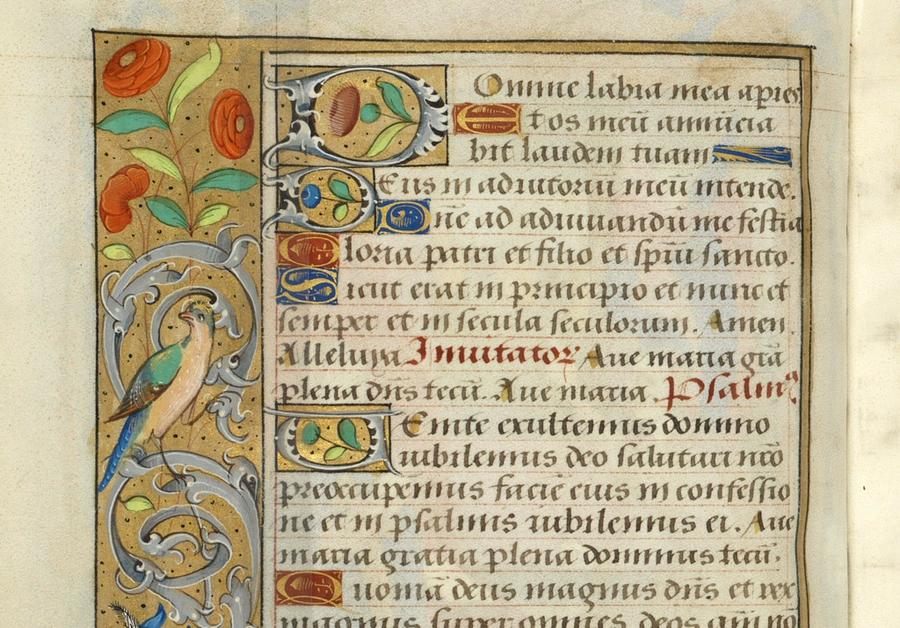 Domine labia mea apries
Et os meū annūcia
bit laudem tuam
Deus in adiutoriū meū intende.
Dn̄e ad adiuuandū me festīa
Gloria patri et filio et sp̄iu sancto.
Sicut erat in principio et nunc et
semper et in secula seculorum. Amen.
Alleluya Inuitatorꝰ Aue maria gr̄a
plena dn̄s tecū. Aue maria. Psalmꝰ
Venite exultemus domino
iubilemus deo salutari nr̄o
preoccupemus faciē eius in confessio
ne et in psalmis iubilemus ei. Aue
maria gratia plena dominus tecū.
Quoniā deus magnus dn̄s et rex
magnus super omnes deos qm̄ no